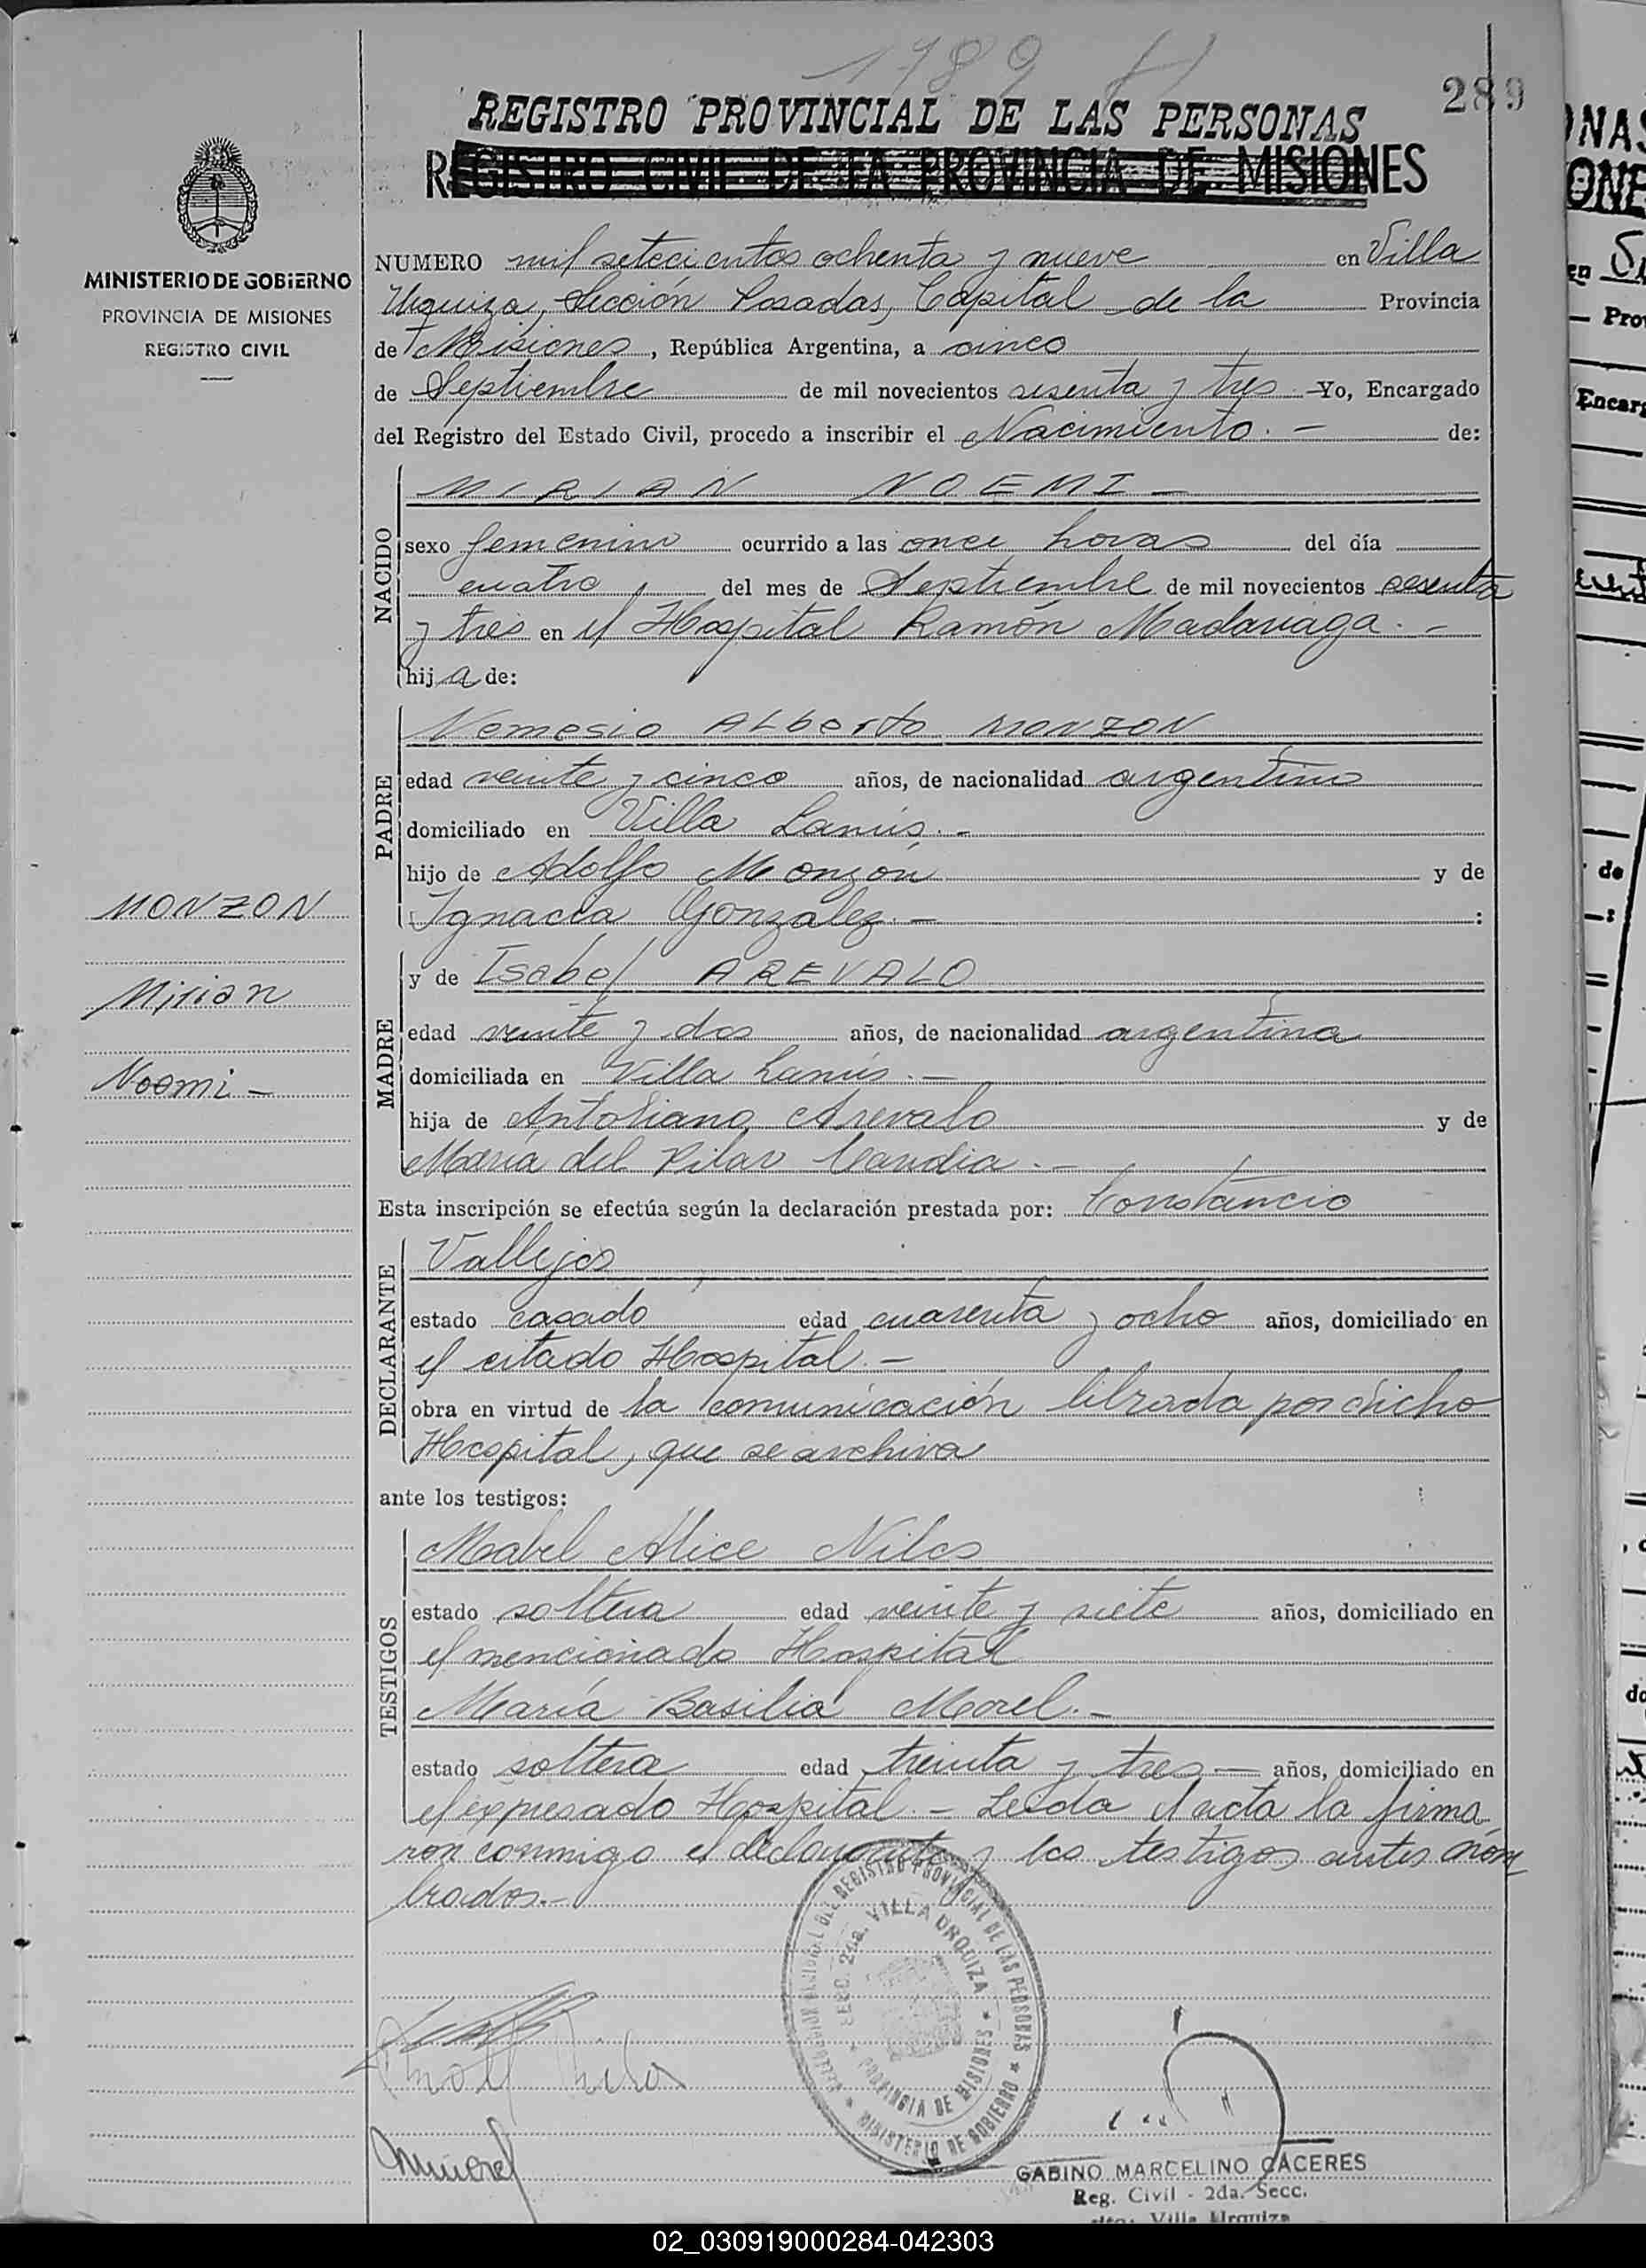 1789
289
REGISTRO PROVINCIAL DE LAS PERSONAS
REGISTRO CIVIL DE LA PROVINCIA DE MISIONES
MINISTERIO DE GOBIERNO
PROVINCIA DE MISIONES
REGISTRO CIVIL
NUMERO mil setecientos ochenta y nueve en Villa
Urquiza, Sección Posadas, Capital de la Provincia
de Misiones, República Argentina, a cinco
de Septiembre de mil novecientos sesenta y tres Yo, Encargado
del Registro del Estado Civil, procedo a inscribir el Nacimiento.- de:
NACIDO
MIRIAN NOEMI -
sexo femenino ocurrido a las once horas del día
cuatro del mes de Septiembre de mil novecientos sesenta
y tres en el Hospital Ramón Madariaga.-
hija de:
PADRE
Nemesio Alberto MONZON
edad veinte y cinco años, de nacionalidad argentino
domiciliado en Villa Lanús.-
hijo de Adolfo Monzón y de
Ignacia Gonzalez.- :
MONZON
Mirian
Noemi -
MADRE
y de Isabel AREVALO
edad veinte y dos años, de nacionalidad argentina
domiciliada en Villa Lanús.-
hija de Antoliano Arevalo y de
María del Pilar Candia.-
Esta inscripción se efectúa según la declaración prestada por: Constancio
DECLARANTE
Vallejos
estado casado edad cuarenta y ocho años, domiciliado en
el citado Hospital.-
obra en virtud de la comunicación librada por dicho
Hospital, que se archiva
ante los testigos:
TESTIGOS
Mabel Alice Nilos
estado soltera edad veinte y siete años, domiciliado en
el mencionado Hospital
María Basilia Morel.-
estado soltera edad treinta y tres - años, domiciliado en
el expresado Hospital.- Leída el acta la firma
ron conmigo el declarante y los testigos antes nom
brados.-
REGISTRO PROVINCIAL DE LAS PERSONAS
SECC. 2da. VILLA URQUIZA
PROVINCIA DE MISIONES
MINISTERIO DE GOBIERNO
GABINO MARCELINO CACERES
Reg. Civil - 2da. Secc.
Villa Urquiza
02_030919000284-042303